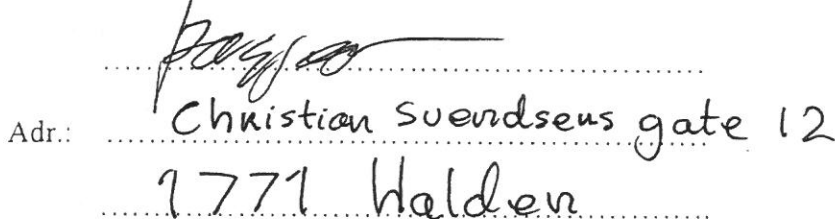 Adr.: Christian Svendsens gate 12
1771 Halden